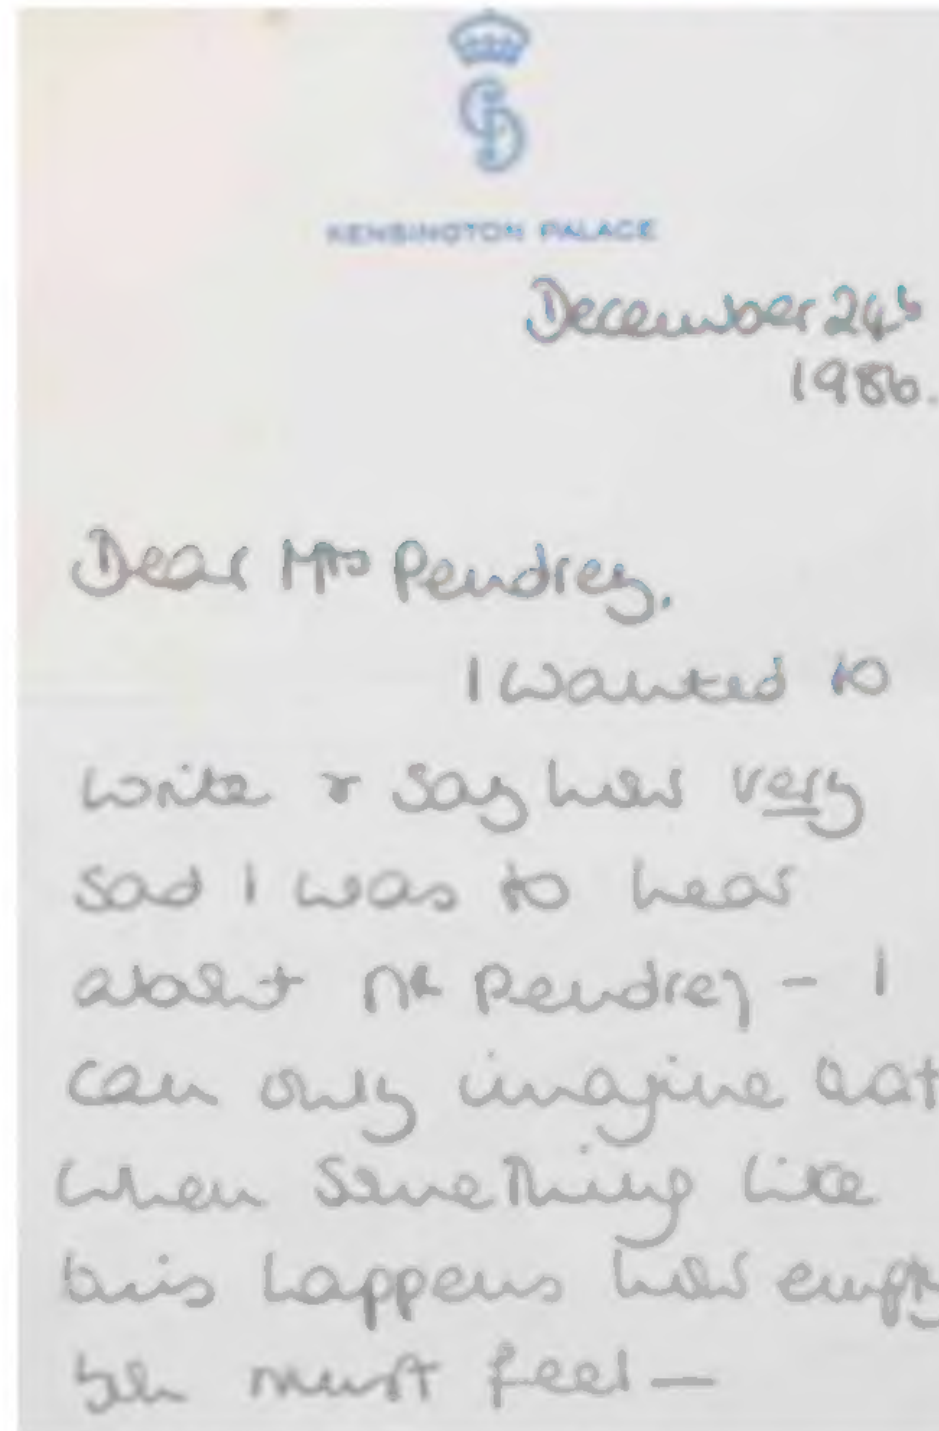 KENSINGTON PALACE
December 24th
1986.
Dear Mrs Pendrey.
I wanted to
write & say how very
sad I was to hear
about Mr Pendrey - I
can only imagine that
when something like
this happens how empty
you must feel —